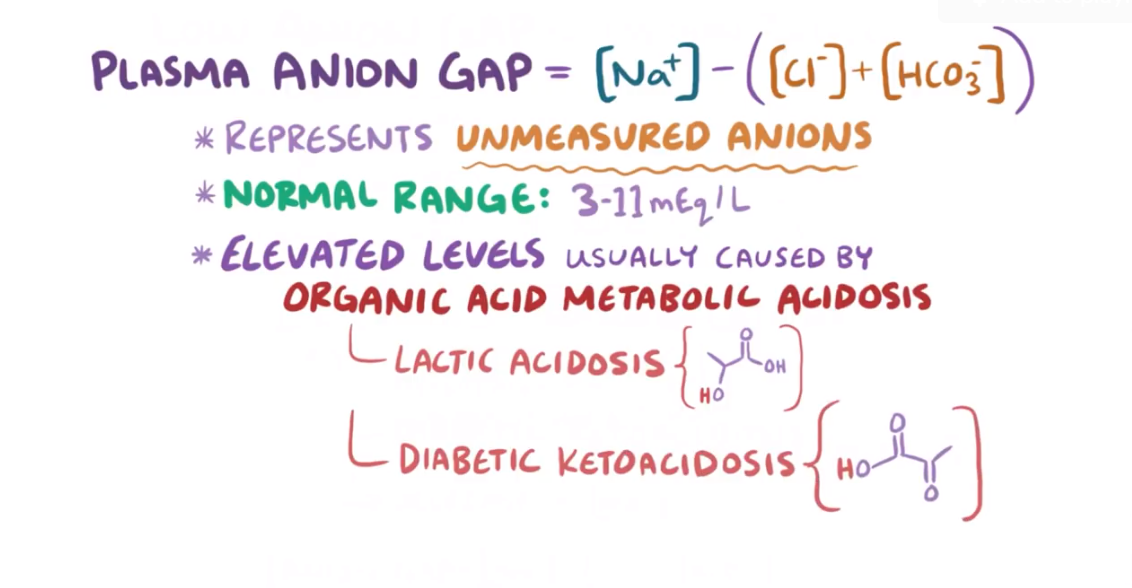 PLASMA ANION GAP = [Na⁺] - ([Cl⁻] + [HCO₃⁻])
* REPRESENTS UNMEASURED ANIONS
* NORMAL RANGE: 3-11 mEq/L
* ELEVATED LEVELS USUALLY CAUSED BY
ORGANIC ACID METABOLIC ACIDOSIS
LACTIC ACIDOSIS { O OH HO }
DIABETIC KETOACIDOSIS { O HO O }